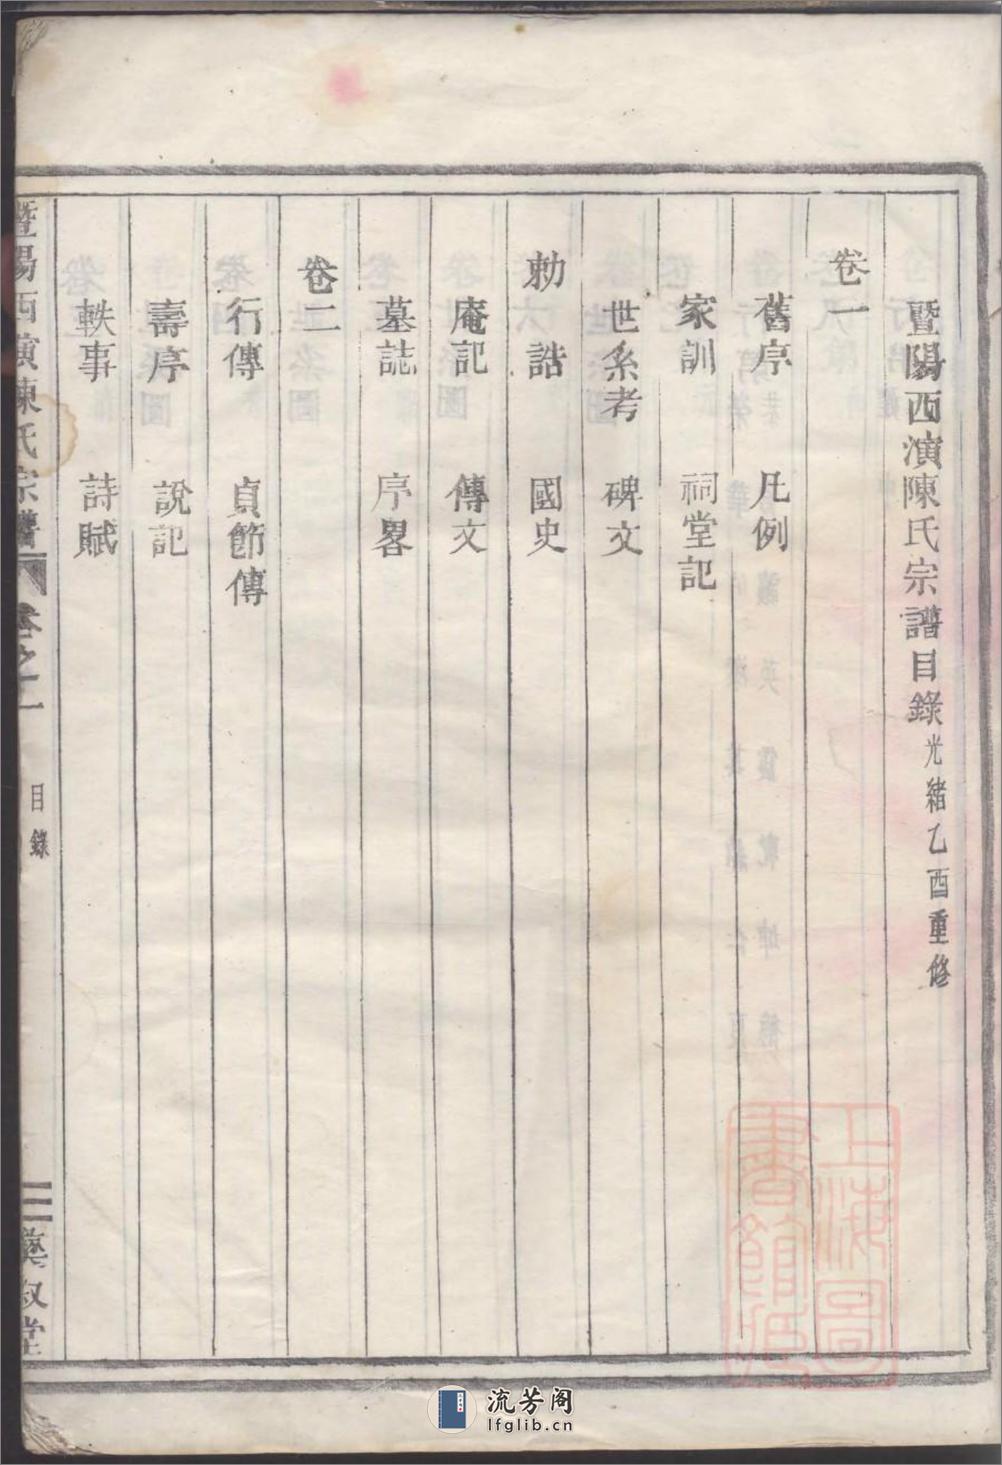 暨陽西演陳氏宗譜目錄光緒乙酉重修
卷一
舊序 凡例
家訓 祠堂記
世系考 碑文
勅誥 國史
庵記 傳文
墓誌 序畧
卷二
行傳 貞節傳
壽序 說記
軼事 詩賦
暨陽西演陳氏宗譜 卷之一 目錄 彝叙堂
上海圖書館藏
流芳阁
lfglib.cn